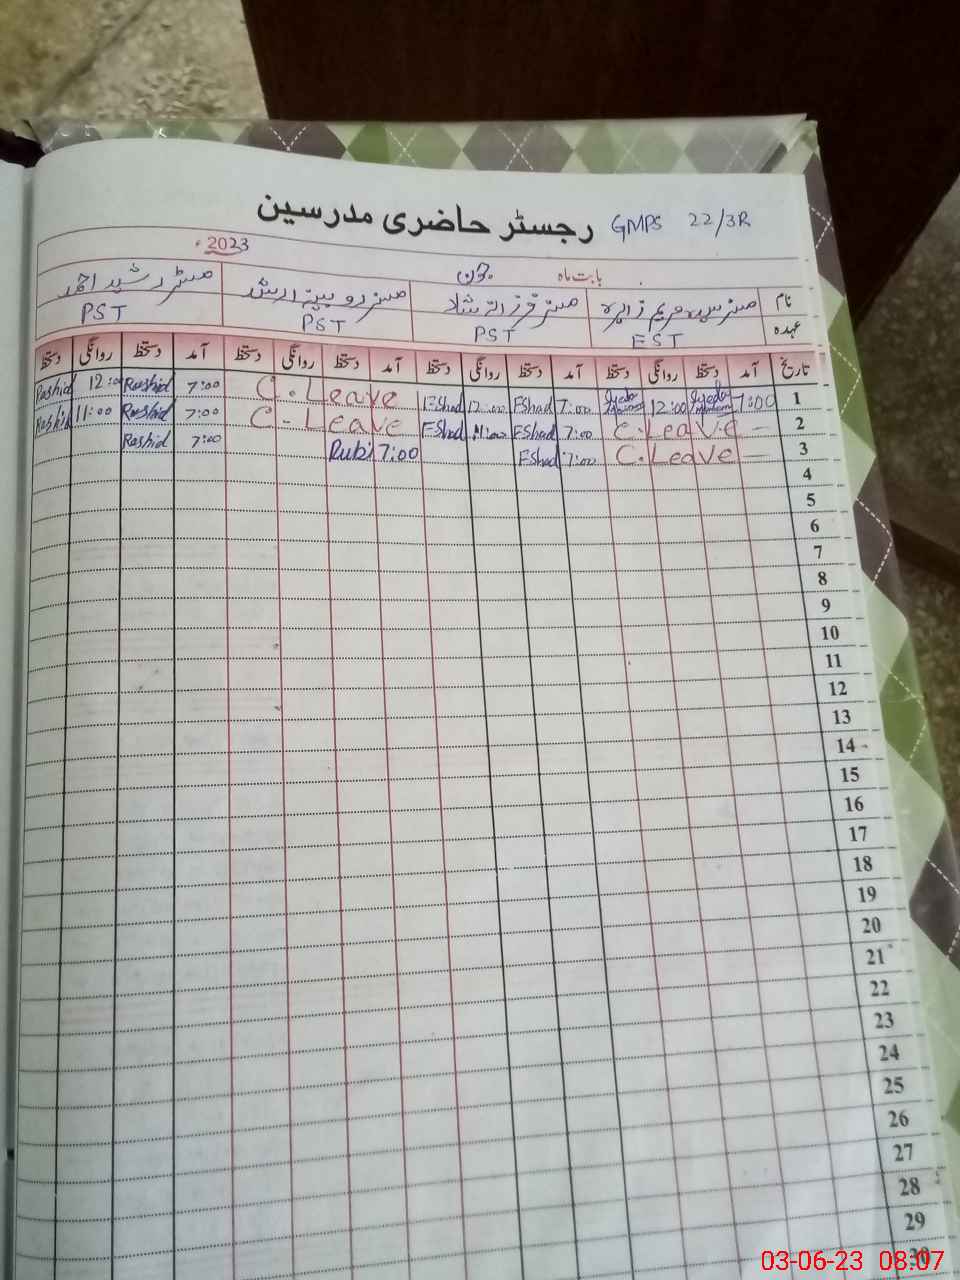 رجسٹر حاضری مدرسین GMPS 22/3R
بابت ماہ جون 2023
نام مسز سیدہ مریم زاہرہ مسز روبینہ مسٹر رشید احمد
عہدہ EST PST PST PST
تاریخ آمد دستخط روانگی دستخط آمد دستخط روانگی دستخط آمد دستخط روانگی دستخط آمد دستخط روانگی دستخط
1 7:00 Syeda 12:00 Syeda 7:00 EShad 12:00 EShad C.Leave 7:00 Rashid 12:00 Rashid
2 C.Leave 7:00 EShad 11:00 EShad C.Leave 7:00 Rashid 11:00 Rashid
3 C.Leave 7:00 EShad 7:00 Rubi 7:00 Rashid
4
5
6
7
8
9
10
11
12
13
14
15
16
17
18
19
20
21
22
23
24
25
26
27
28
29
30
03-06-23 08:07